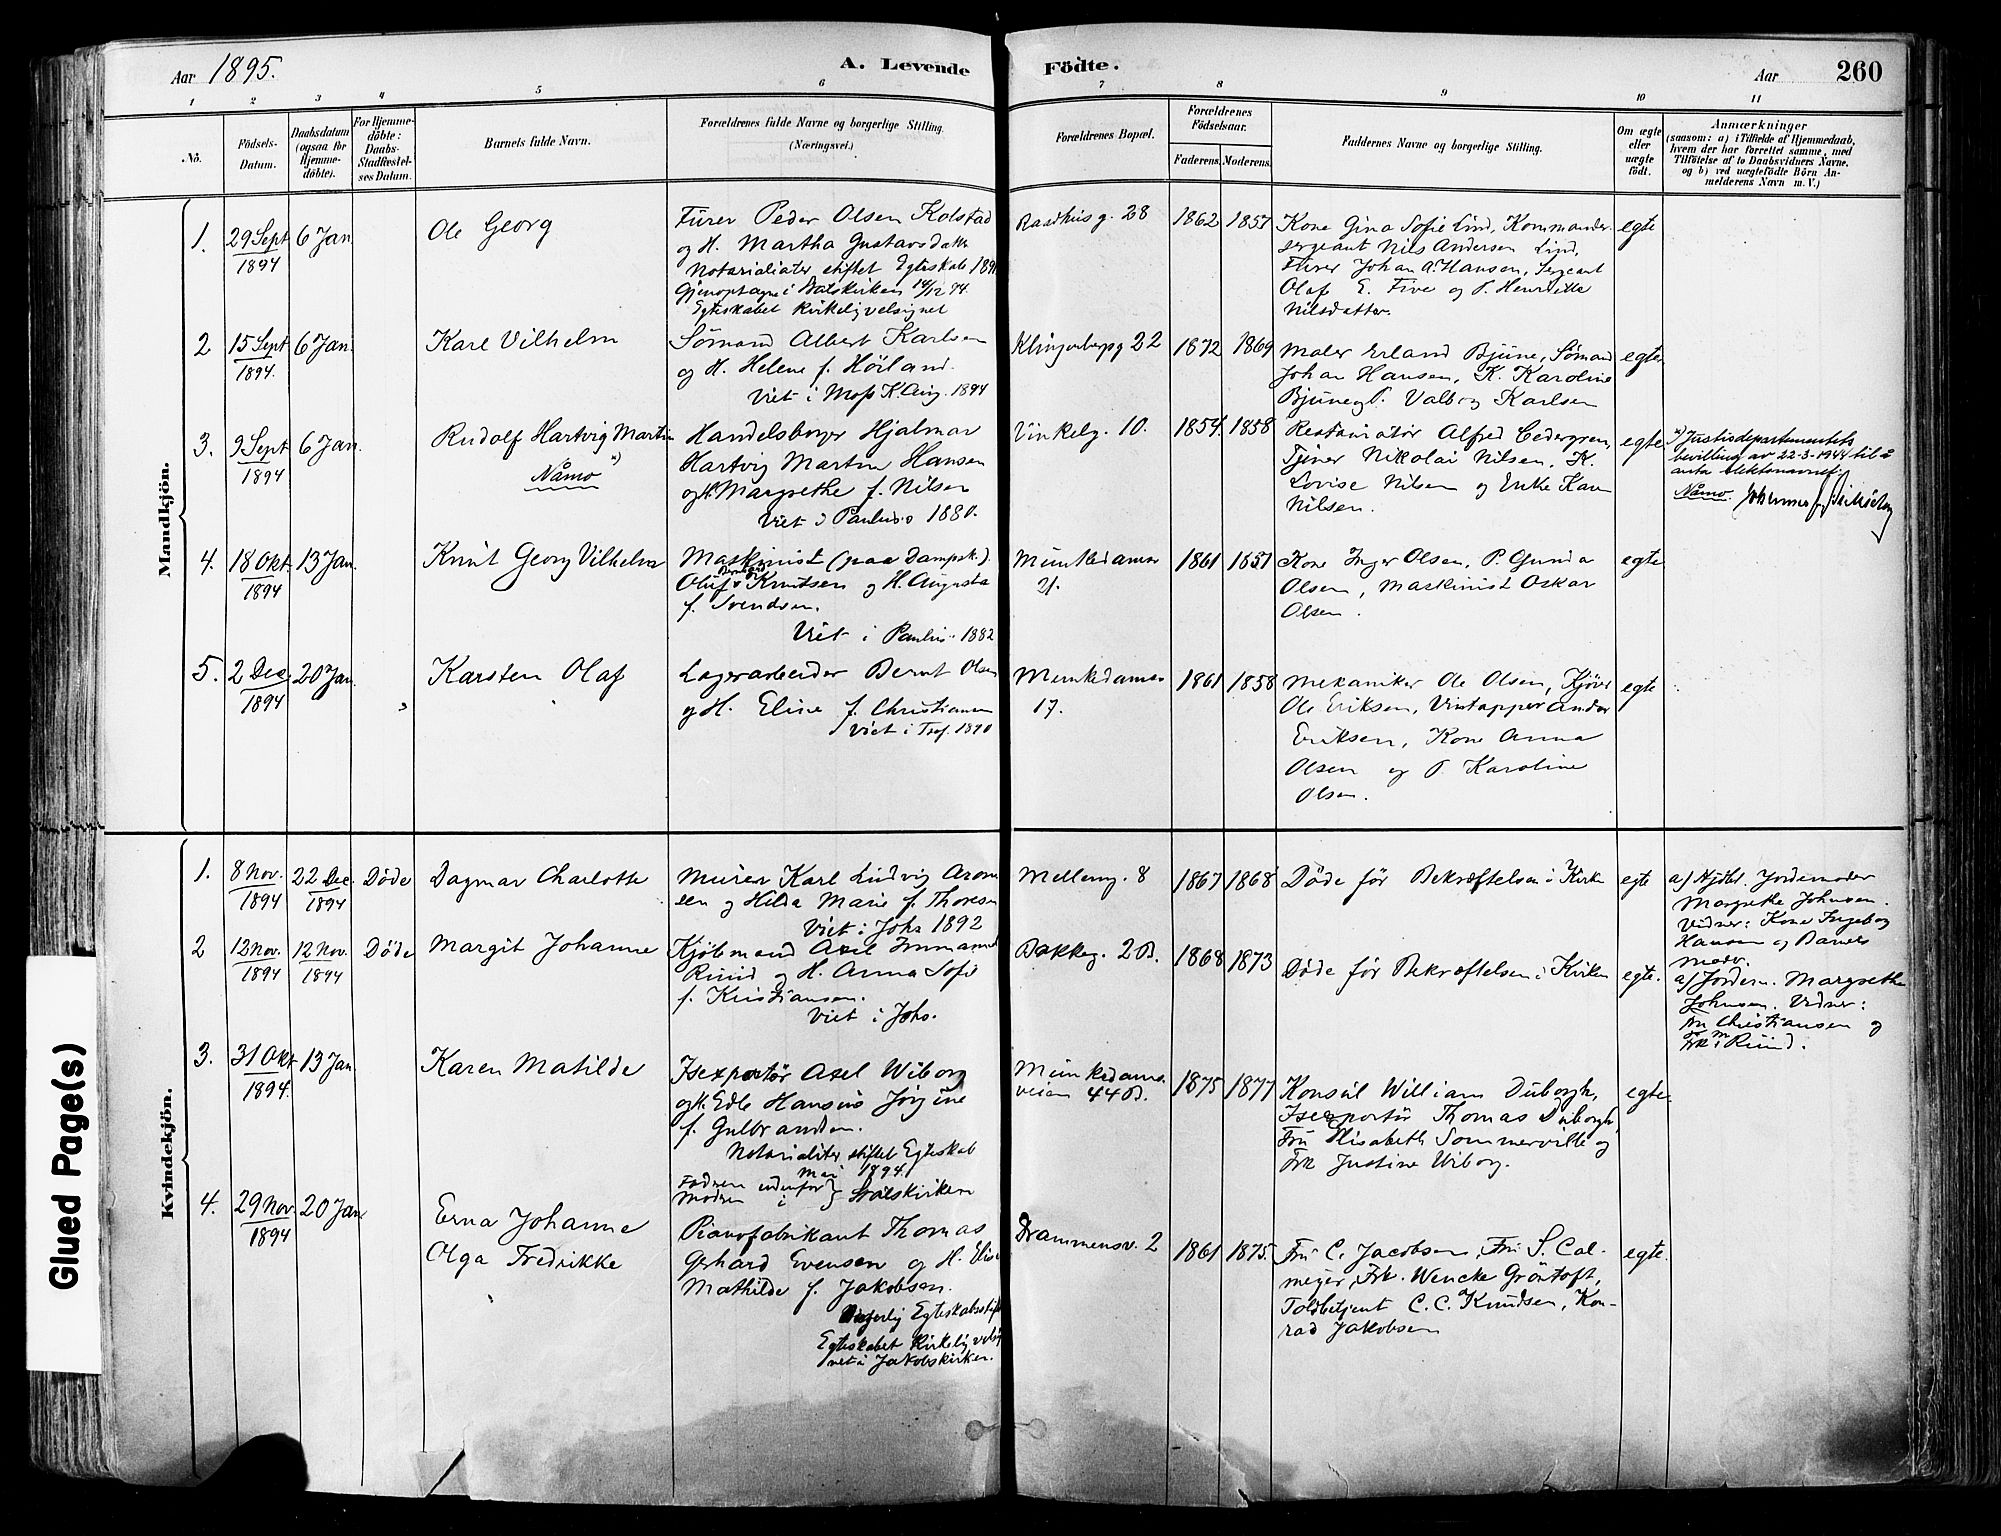 Aar 1895.
A. Levende Födte.
Aar 260
1 2 3 4 5 6 7 8 9 10 11
No.
Födsels-
Datum.
Daabsdatum
(ogsaa for
Hjemme-
döbte).
For Hjemme-
döbte:
Daabs-
Stadfæstel-
ses Datum.
Barnets fulde Navn.
Forældrenes fulde Navne og borgerlige Stilling.
(Næringsvei.)
Forældrenes Bopæl.
Forældrenes
Födselsaar.
Faderens. Moderens.
Faddernes Navne og borgerlige Stilling.
Om ægte
eller
uægte
födt.
Anmærkninger
(saasom: a) i Tilfælde af Hjemmedaab,
hvem der har forrettet samme, med
Tilföielse af to Daabsvidners Navne,
og b) ved uægtefödte Börn An-
melderens Navn m. V.)
Mandkjön.
1. 29 Sept 1894
6 Jan.
Ole Georg
Furer Peder Olsen Kolstad
og H. Martha Gustavsdatt
Notarialiter stiftet Egteskab 189
Gjenoptagne i Statskirken 14/12 94
Egteskabet kirkelig velsignet
Raadhusg. 28
1862 1857
Kone Gina Sofie Lind, Kommander-
sergeant Nils Andersen Lind,
Furer Johan A. Hansen, Sergeant
Olaf E. Five og P. Henriette
Nilsdatter.
egte
2 15 Sept 1894.
6 Jan.
Karl Vilhelm
Sömand Albert Karlsen
og H. Helene f. Hörland.
Viet i Moss K. Aug. 1894
Klingenbergg 22
1872 1869
Maler Erland Bjune, Sömand
Johan Hansen, K. Karoline
Bjune og P. Valborg Karlsen
egte
3. 9 Sept 1894
6 Jan.
Rudolf Hartvig Martin
Nåmo x)
Handelsborger Hjalmar
Hartvig Martin Hansen
og H. Margrethe f. Nilsen
Viet i Paulus 1880.
Vinkelg. 10.
1854. 1858
Restauratør Alfred Cedergren,
Tjener Nikolai Nilsen, K.
Lovise Nilsen og Enke Karen
Nilsen.
egte
x) Justisdepartementets
bevilling av 22-3-1944 til å
anta slektsnavnet:
Nåmo.
4. 18 Okt. 1894
13 Jan.
Knut Georg Vilhelm
Maskinist (paa Dampsk.)
Oluf Bernhard Knutsen og H. Augusta
f. Svendsen.
Viet i Paulus 1882
Munkedamsv
21.
1861 1857
Kone Inger Olsen, P. Gunda
Olsen, Maskinist Oskar
Olsen.
egte
5. 2 Dec. 1894
20 Jan.
Karsten Olaf
Lagerarbeider Bernt Olsen
og H. Eline f. Christiansen
Viet i Tref. 1890
Munkedamsv
17.
1861 1858
Mekaniker Ole Olsen, Kjörer
Ole Eriksen, Vintapper Andor
Eriksen, Kone Anna
Olsen og P. Karoline
Olsen.
egte
Kvindekjön.
1. 8 Nov. 1894
22 Dec. 1894
Döde
Dagmar Charlotte
Murer Karl Ludvig Aron
sen og Hilda Marie f. Thoresen
Viet i Johs 1892
Mellemg. 8
1867 1868
Döde för Bekræftelsen i Kirken
egte
a) Ajdbt. Jordemoder
Margrethe Johnsen.
Vidner: Kone Ingeborg
Hansen og Barnets
Moder.
2 12 Nov. 1894
12 Nov. 1894
Döde
Margit Johanne
Kjöbmand Axel Immanuel
Ruud og H. Anna Sofie
f. Kristiansen.
Viet i Johs.
Bakkeg. 2 B.
1868 1873
Döde för Bekræftelsen i Kirken
egte.
a) Jordem. Margrethe
Johnsen. Vidner:
Fru Christiansen og
Frk. Ruud.
3. 31 Okt. 1894.
13 Jan.
Karen Matilde
Isexportör Axel Wiborg
og H. Edle Hansine Jørgine
f. Gulbrandsen.
Notarialiter stiftet Egteskab
Mai 1894
Fadren udenfor,
Modren i Statskirken
Munkedams-
veien 44 B.
1875 1877
Konsul William Duborgh,
Isexportör Thomas Duborgh,
Fru Elisabeth Sommerville og
Frk Justine Wiborg.
egte
4. 29 Nov. 1894
20 Jan.
Erna Johanne
Olga Fredrikke
Pianofabrikant Thomas
Gerhard Evensen og H. Elise
Mathilde f. Jakobsen.
Borgerlig Egteskabsstift
Egteskabet Kirkelig velsig
net i Jakobskirken.
Drammensv. 2
1861 1875.
Fru C. Jacobsen, Fru S. Cal-
meyer, Frk. Wencke Gröntoft,
Toldbetjent C. C. Knudsen, Kon-
rad Jakobsen
egte.
Glued Page(s)